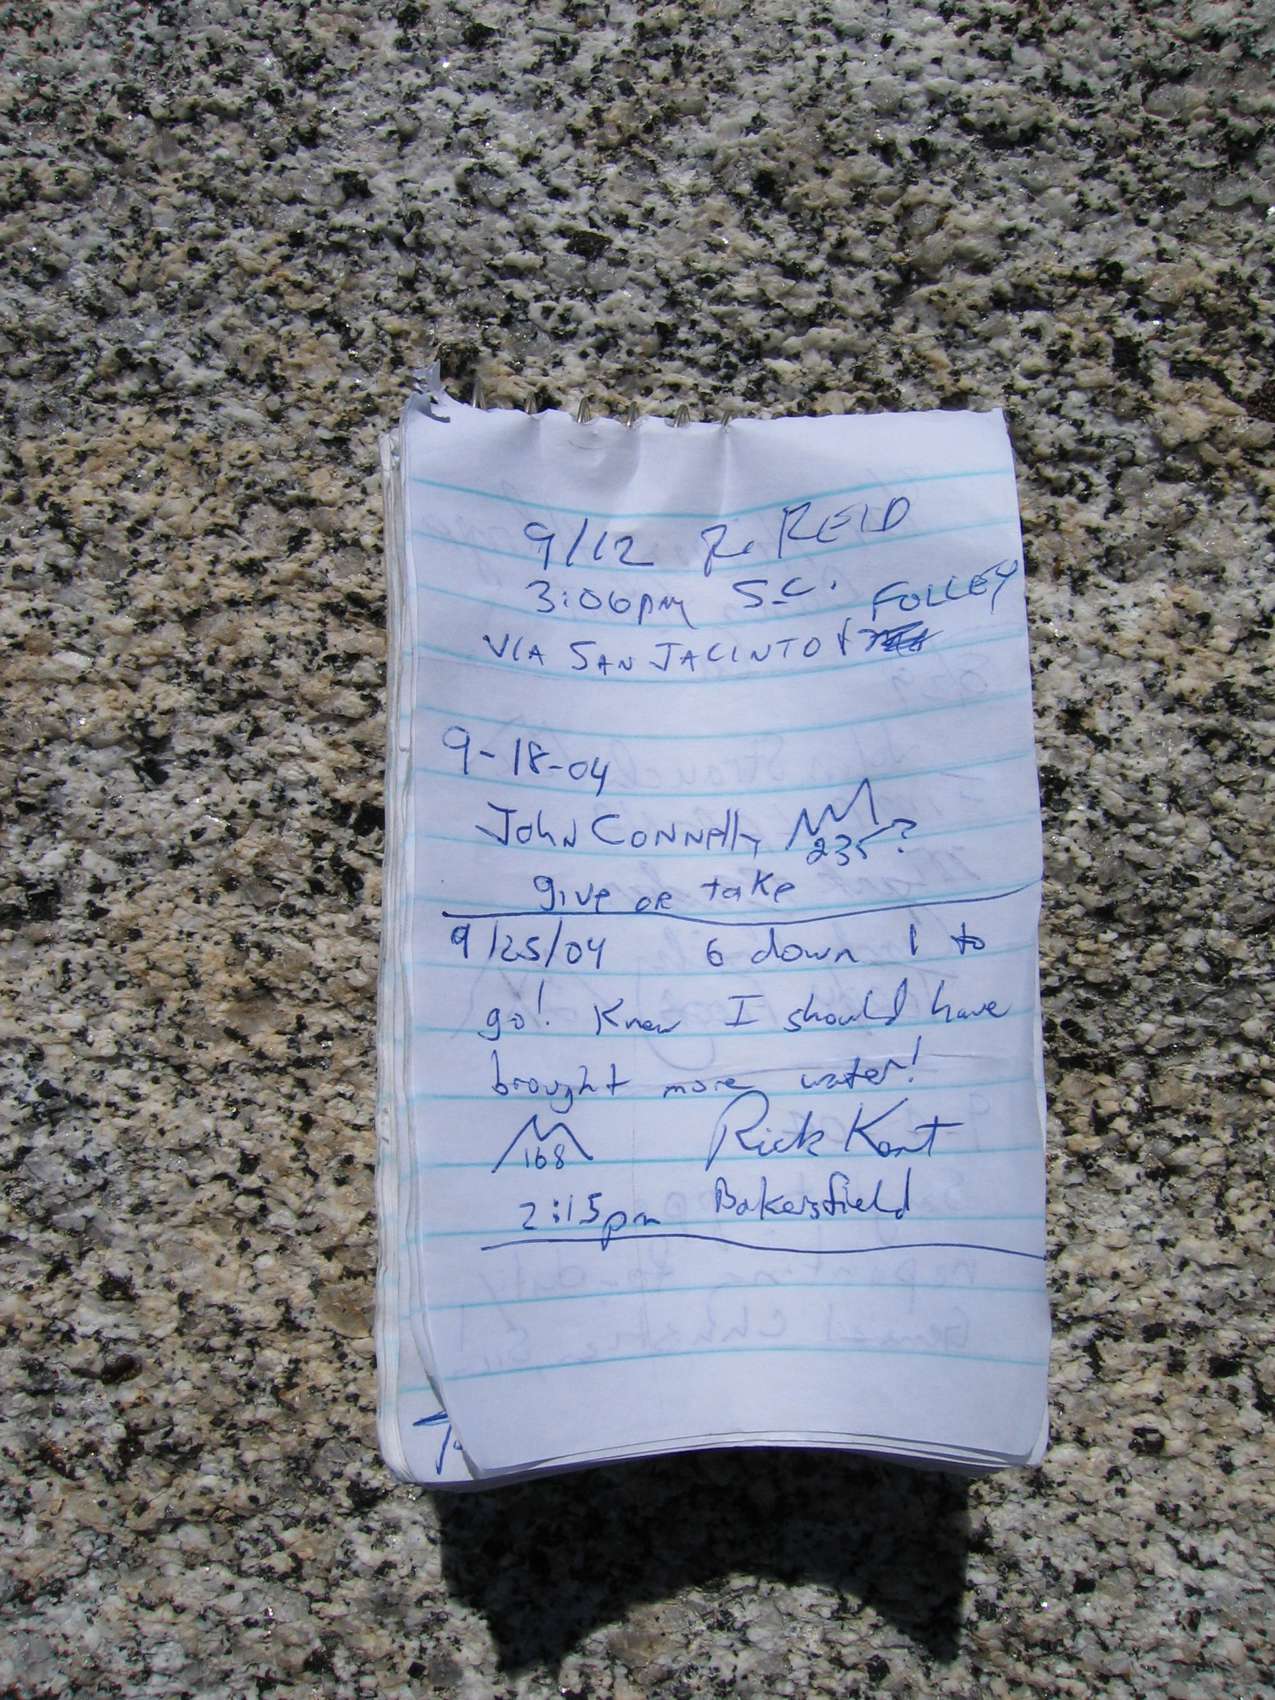 9/12 R. REID
3:06pm S.C.
FOLLEY
VIA SAN JACINTO &
9-18-04
John Connelly 235?
give or take
9/25/04 6 down 1 to
go! Knew I should have
brought more water!
168 Rick Kent
2:15pm Bakersfield